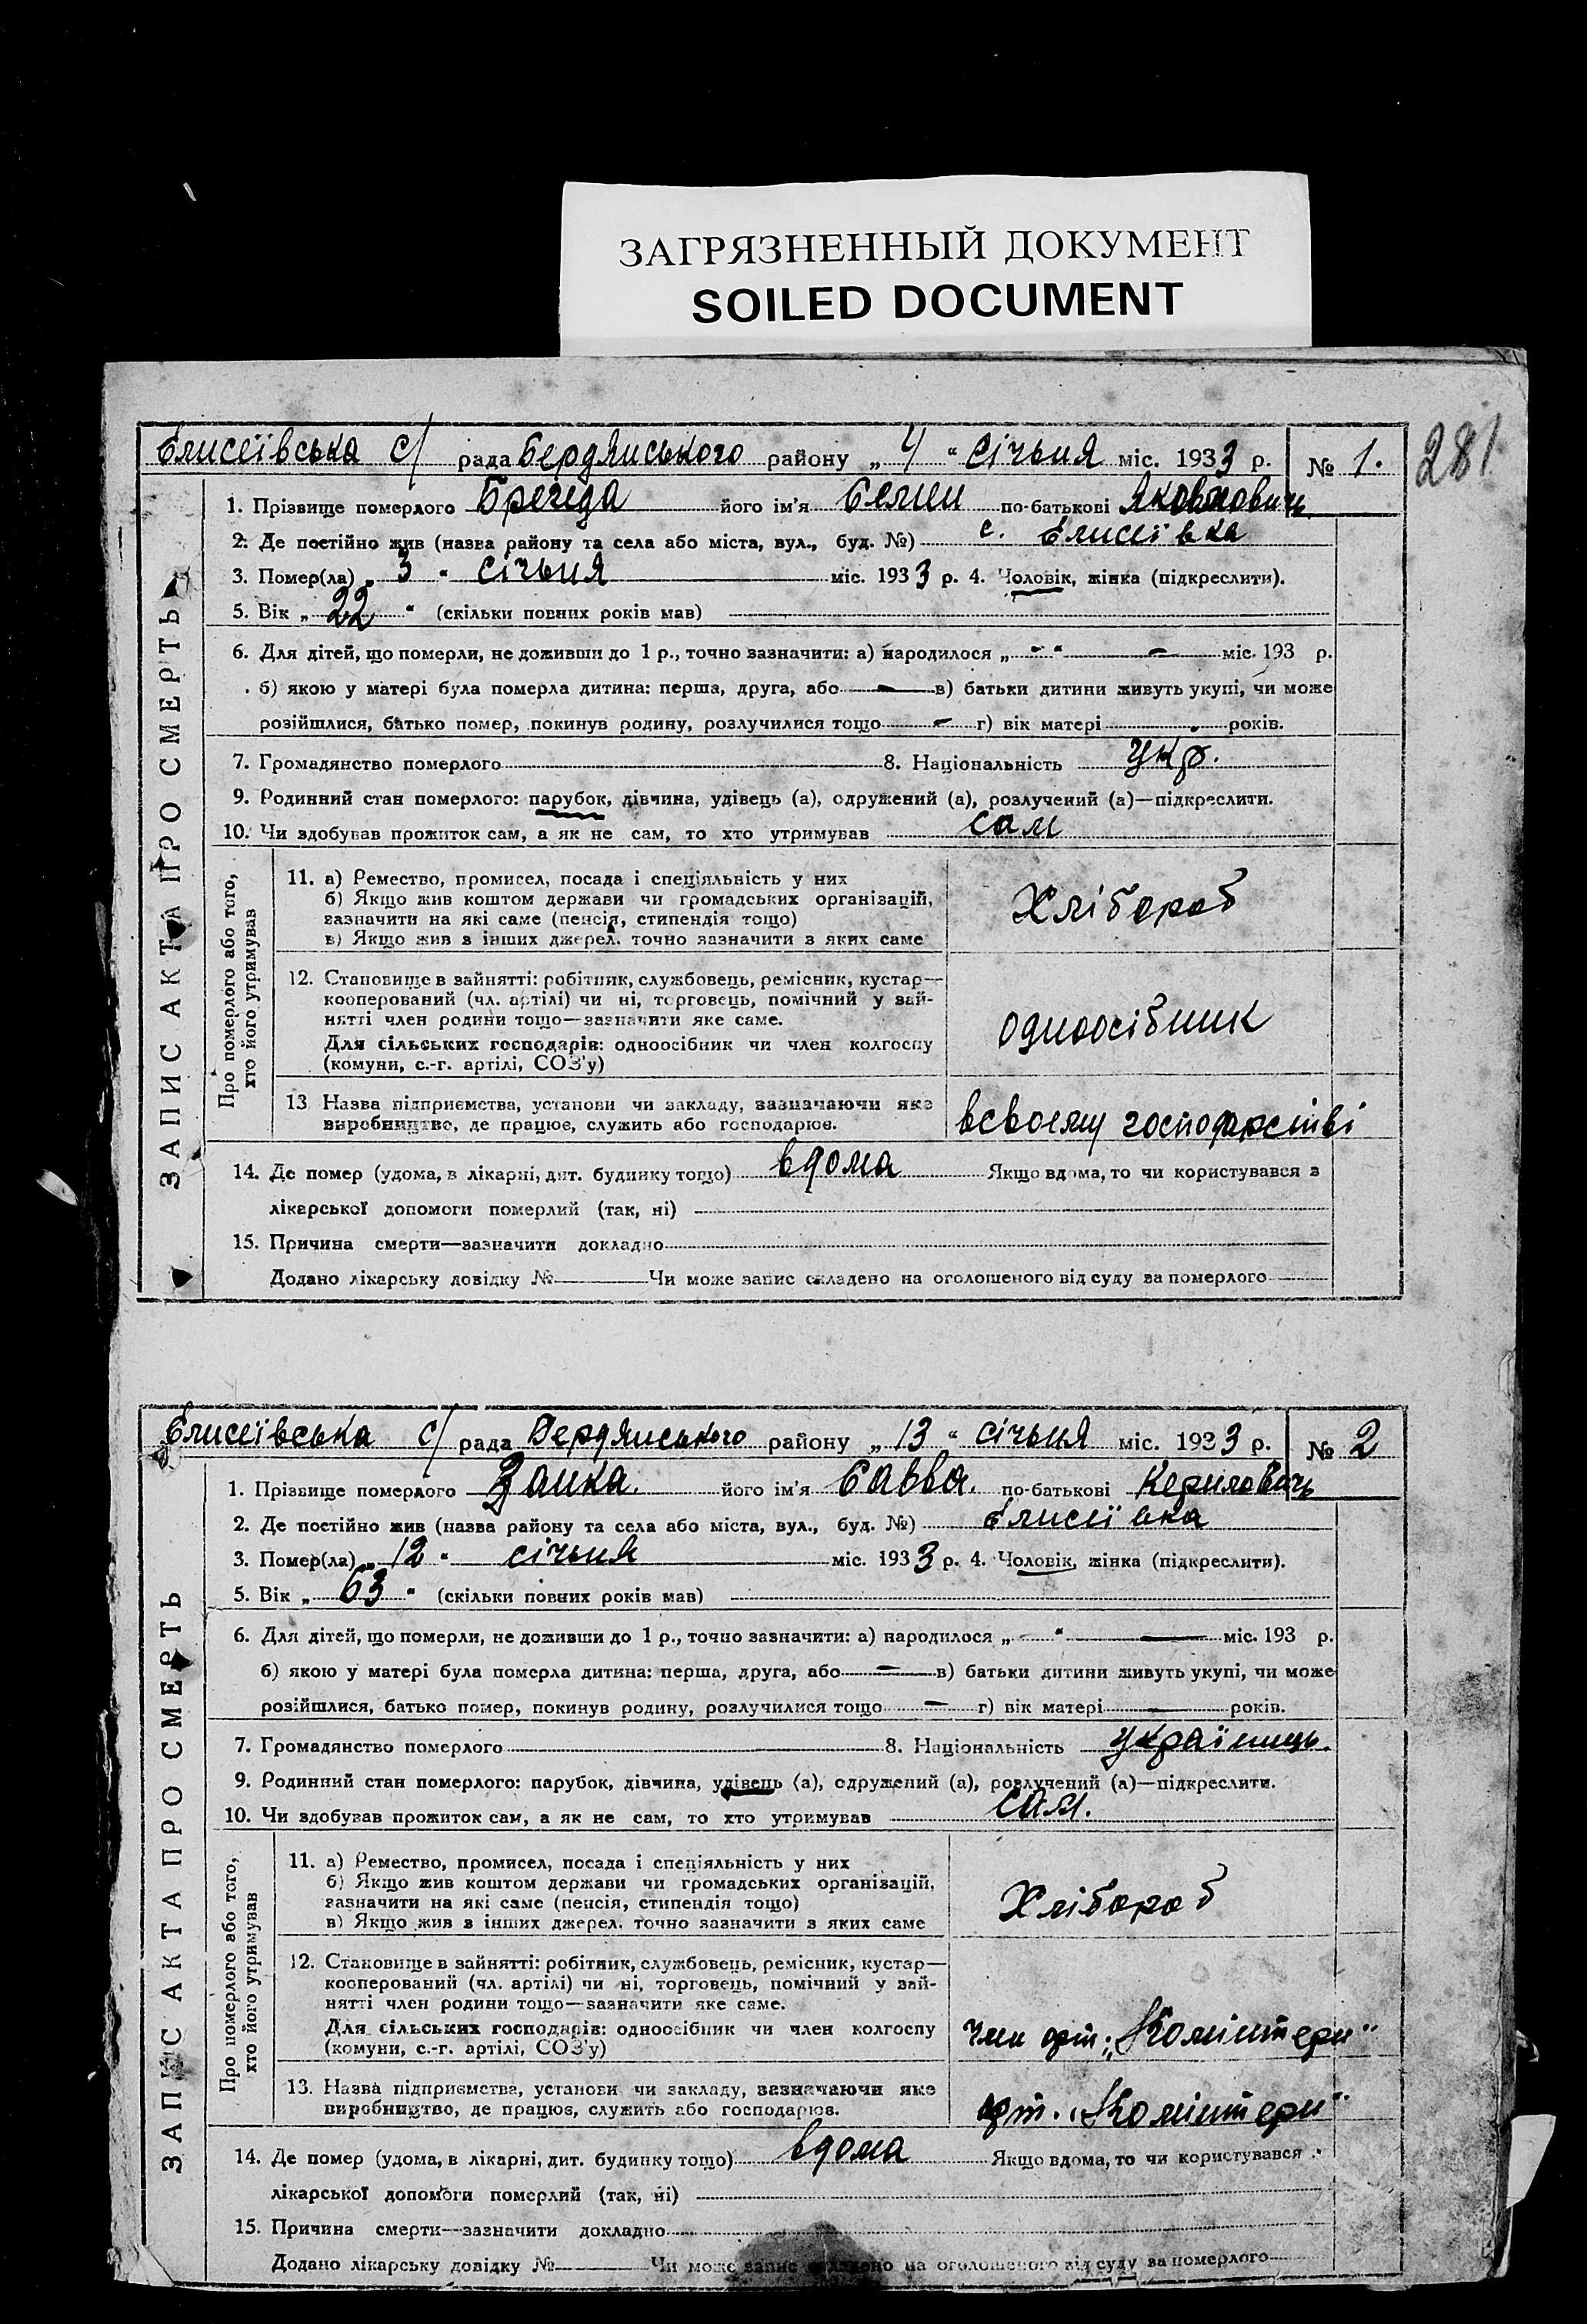 ЗАГРЯЗНЕННЫЙ ДОКУМЕНТ
SOILED DOCUMENT
281
Єлисеївська с/ рада Бердянського району „ 4 “ січьня міс. 1933 р. № 1.
ЗАПИС АКТА ПРО СМЕРТЬ
1. Прізвище померлого його ім'я по-батькові
2. Де постійно жив (назва району та села або міста, вул., буд. №) с. Єлисеївка
3. Помер(ла) „ 3 “ січьня міс. 1933 р. 4. Чоловік, жінка (підкреслити).
5. Вік „ 22 “ (скільки повних років мав)
6. Для дітей, що померли, не доживши до 1 р., точно зазначити: а) народилося „ - “ — міс. 193 р.
б) якою у матері була померла дитина: перша, друга, або — в) батьки дитини живуть укупі, чи може
розійшлися, батько помер, покинув родину, розлучилися тощо — г) вік матері років.
7. Громадянство померлого 8. Національність укр.
9. Родинний стан померлого: парубок, дівчина, удівець (а), одружений (а), розлучений (а)—підкреслити.
10. Чи здобував прожиток сам, а як не сам, то хто утримував сам
Про померлого або того,
хто його утримував
11. а) Ремество, промисел, посада і спеціяльність у них
б) Якщо жив коштом держави чи громадських організацій,
зазначити на які саме (пенсія, стипендія тощо)
в) Якщо жив з інших джерел, точно зазначити з яких саме
Хлібороб
12. Становище в зайнятті: робітник, службовець, ремісник, кустар—
кооперований (чл. артілі) чи ні, торговець, помічний у зай-
нятті член родини тощо—зазначити яке саме.
Для сільських господарів: одноосібник чи член колгоспу
(комуни, с.-г. артілі, СОЗ'у)
одноосібник
13 Назва підприємства, установи чи закладу, зазначаючи яке
виробництво, де працює, служить або господарює.
всвоєму господарстві
14. Де помер (удома, в лікарні, дит. будинку тощо) вдома Якщо вдома, то чи користувався з
лікарської допомоги померлий (так, ні)
15. Причина смерти—зазначити докладно
Додано лікарську довідку № Чи може запис складено на оголошеного від суду за померлого
Єлисеївська с/ рада Бердянського району „ 13 “ січьня міс. 1933 р. № 2
ЗАПИС АКТА ПРО СМЕРТЬ
1. Прізвище померлого Заика. його ім'я Савва. по-батькові Керилович
2. Де постійно жив (назва району та села або міста, вул., буд. №) Єлисеївка
3. Помер(ла) „ 12 “ січьня міс. 1933 р. 4. Чоловік, жінка (підкреслити).
5. Вік „ 63 “ (скільки повних років мав)
6. Для дітей, що померли, не доживши до 1 р., точно зазначити: а) народилося „ “ — міс. 193 р.
б) якою у матері була померла дитина: перша, друга, або — в) батьки дитини живуть укупі, чи може
розійшлися, батько помер, покинув родину, розлучилися тощо — г) вік матері — років.
7. Громадянство померлого 8. Національність україниць.
9. Родинний стан померлого: парубок, дівчина, удівець (а), одружений (а), розлучений (а)—підкреслити.
10. Чи здобував прожиток сам, а як не сам, то хто утримував сам.
Про померлого або того,
хто його утримував
11. а) Ремество, промисел, посада і спеціяльність у них
б) Якщо жив коштом держави чи громадських організацій,
зазначити на які саме (пенсія, стипендія тощо)
в) Якщо жив з інших джерел, точно зазначити з яких саме
Хлібороб
12. Становище в зайнятті: робітник, службовець, ремісник, кустар—
кооперований (чл. артілі) чи ні, торговець, помічний у зай-
нятті член родини тощо—зазначити яке саме.
Для сільських господарів: одноосібник чи член колгоспу
(комуни, с.-г. артілі, СОЗ'у)
член арт. „Комінтерн“
13. Назва підприємства, установи чи закладу, зазначаючи яке
виробництво, де працює, служить або господарює.
арт. „Комінтерн“
14. Де помер (удома, в лікарні, дит. будинку тощо) вдома Якщо вдома, то чи користувався
лікарської допомоги померлий (так, ні)
15. Причина смерти—зазначити докладно
Додано лікарську довідку № Чи може запис складено на оголошеного від суду за померлого